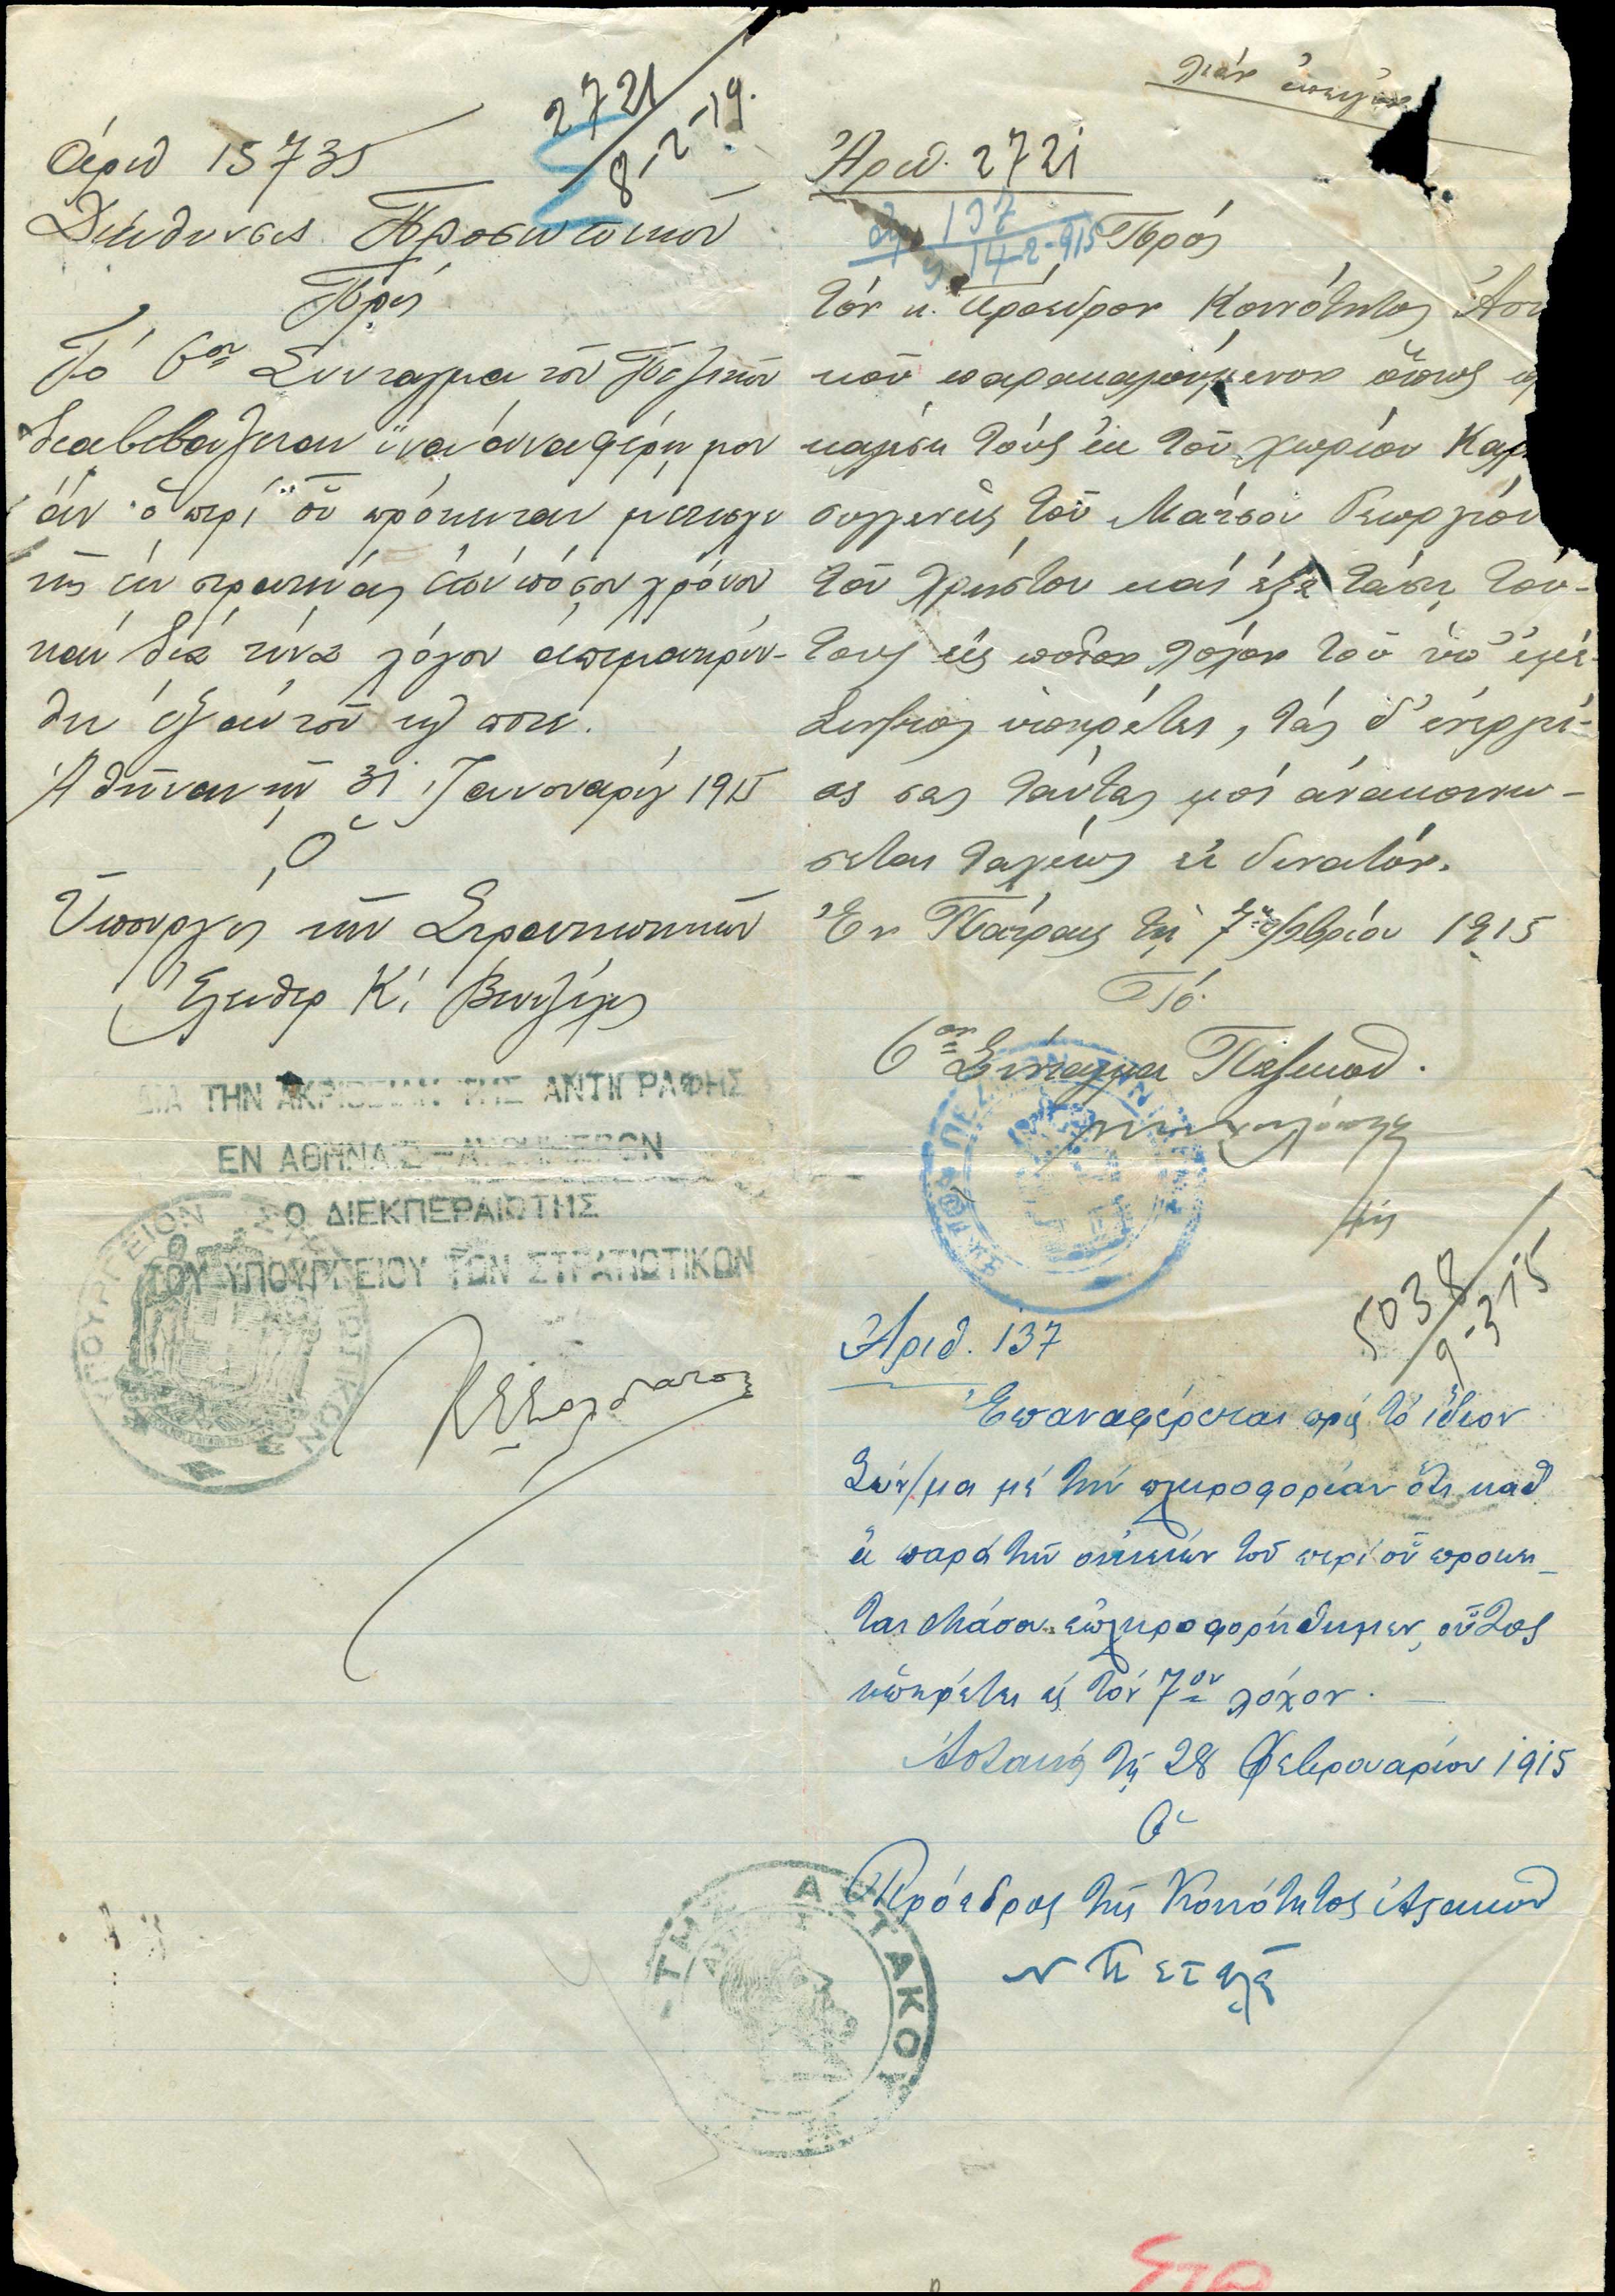 2721
8-2-19.
Ἀριθ 15735
Διεύθυνσις Προσωπικοῦ
Πρὸς
Τὸ 6ον Σύνταγμα τοῦ Πεζικοῦ
διαβιβάζεται ἵνα ἀναφέρῃ μοι
ἂν ὁ περὶ οὗ πρόκειται μετέσχε
τῆς ἐν στρατείας ἐπὶ πόσον χρόνον
καὶ διὰ τίνα λόγον ἀπεμακρύν-
θη ἐξ αὐτοῦ κλπ
Ἀθῆναι τῇ 31 Ἰανουαρίου 1915
Ὁ
Ὑπουργὸς τῶν Στρατιωτικῶν
Ἐλευθερ Κ. Βενιζέλος
ΔΙΑ ΤΗΝ ΑΚΡΙΒΕΙΑΝ ΤΗΣ ΑΝΤΙΓΡΑΦΗΣ
ΕΝ ΑΘΗΝΑΙΣ ΑΥΘΗΜΕΡΟΝ
Ο ΔΙΕΚΠΕΡΑΙΩΤΗΣ
ΤΟΥ ΥΠΟΥΡΓΕΙΟΥ ΤΩΝ ΣΤΡΑΤΙΩΤΙΚΩΝ
ΥΠΟΥΡΓΕΙΟΝ ΣΤΡΑΤΙΩΤΙΚΩΝ
λίαν ἐπεῖγον
Ἀριθ. 2721
137
14-2-915
Πρὸς
τὸν κ. Πρόεδρον Κοινότητος Ἀστ
κοῦ παρακαλούμενον ὅπως
καλέσῃ τοὺς ἐκ τοῦ χωρίου Καρ
συγγενεῖς τοῦ Μάτσου Γεωργίου
τοῦ Χρήστου καὶ ἐξετάσῃ τού-
τους εἰς ποῖον λόχον τοῦ ὑπ' ἐμὲ
Συν/τος ὑπηρέτει, τὰς δ' ἐνεργεί-
ας σας ταύτας μοὶ ἀνακοινώ-
σεται ταχέως εἰ δυνατόν.
Ἐν Πάτραις τῇ 7ῃ φβρίου 1915
Τὸ
6ον Σύνταγμα Πεζικοῦ.
5038
9-3-15
Ἀριθ. 137
Ἐπαναφέρεται πρὸς τὸ ἴδιον
Σύν/μα μὲ τὴν πληροφορίαν ὅτι καθ
ἃ παρὰ τῶν οἰκείων τοῦ περὶ οὗ πρόκει-
ται Μάτσου ἐπληροφορήθημεν, οὗτος
ὑπηρέτει εἰς τὸν 7ον λόχον.
Ἀστακὸς τῇ 28 Φεβρουαρίου 1915
Ὁ
Πρόεδρος τῆς Κοινότητος Ἀστακοῦ
Ν Πεταλᾶ
ΑΣΤΑΚΟΥ